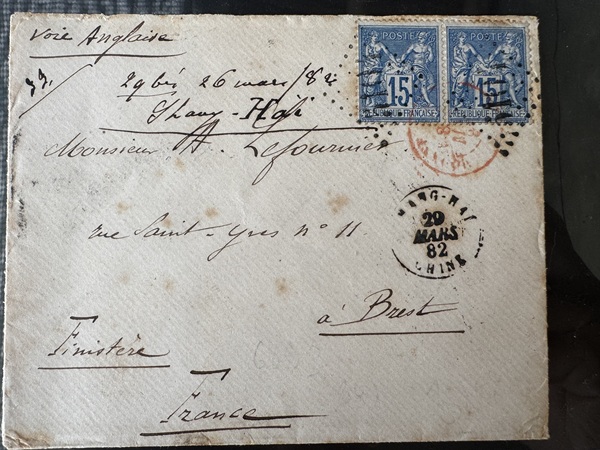 Voie Anglaise
29 bis 26 mars/82
Shang-Haï
Monsieur A. Lefournier
rue Saint-Yves n° 11
à Brest
Finistère
France
POSTE POSTE
15 15
REPUBLIQUE FRANÇAISE REPUBLIQUE FRANÇAISE
SHANG-HAI
29
MARS
82
CHINE